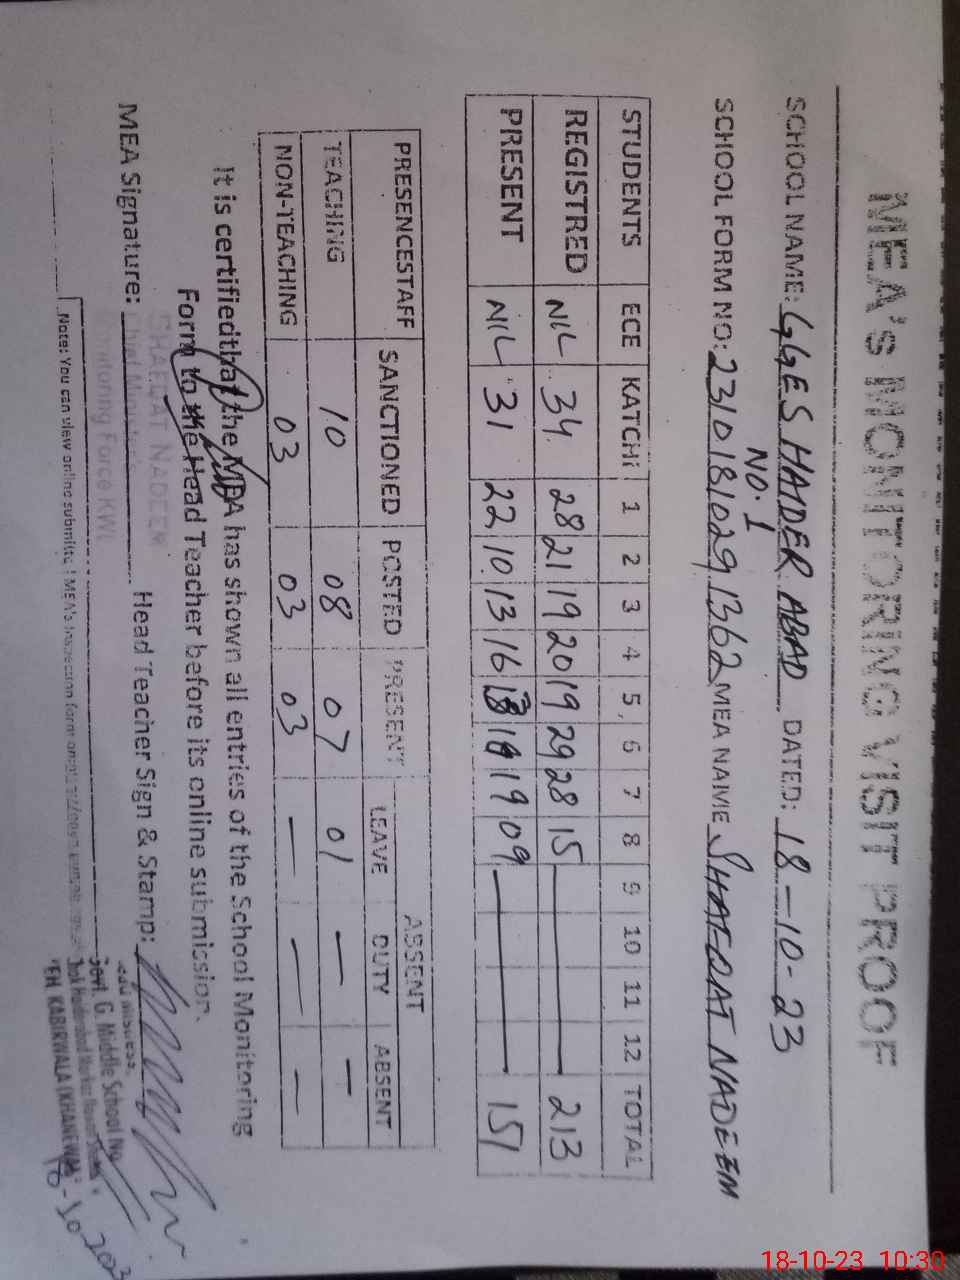 MEA's MONITORING VISIT PROOF
SCHOOL NAME: GGES HAIDER ABAD DATED: 18-10-23
NO. 1
SCHOOL FORM NO: 23101810291362 MEA NAME SHAFQAT NADEEM
STUDENTS ECE KATCHI 1 2 3 4 5 6 7 8 9 10 11 12 TOTAL
REGISTRED NIL 34 28 21 19 20 19 29 28 15 213
PRESENT NIL 31 22 10 13 16 19 09 151
ABSENT
PRESENCESTAFF SANCTIONED POSTED PRESENT LEAVE DUTY ABSENT
TEACHING 10 08 07 01 — —
NON-TEACHING 03 03 03 — — —
It is certified that the MEA has shown all entries of the School Monitoring
Form to the Head Teacher before its online submission.
SHAFQAT NADEEM
MEA Signature: Head Teacher Sign & Stamp:
Chief Minister's
Monitoring Force KWL
Note: You can view online submitted MEA's inspection form
Govt. G Middle School No.
TEH KABIRWALA (KHANEWAL)
18-10-23 10:30